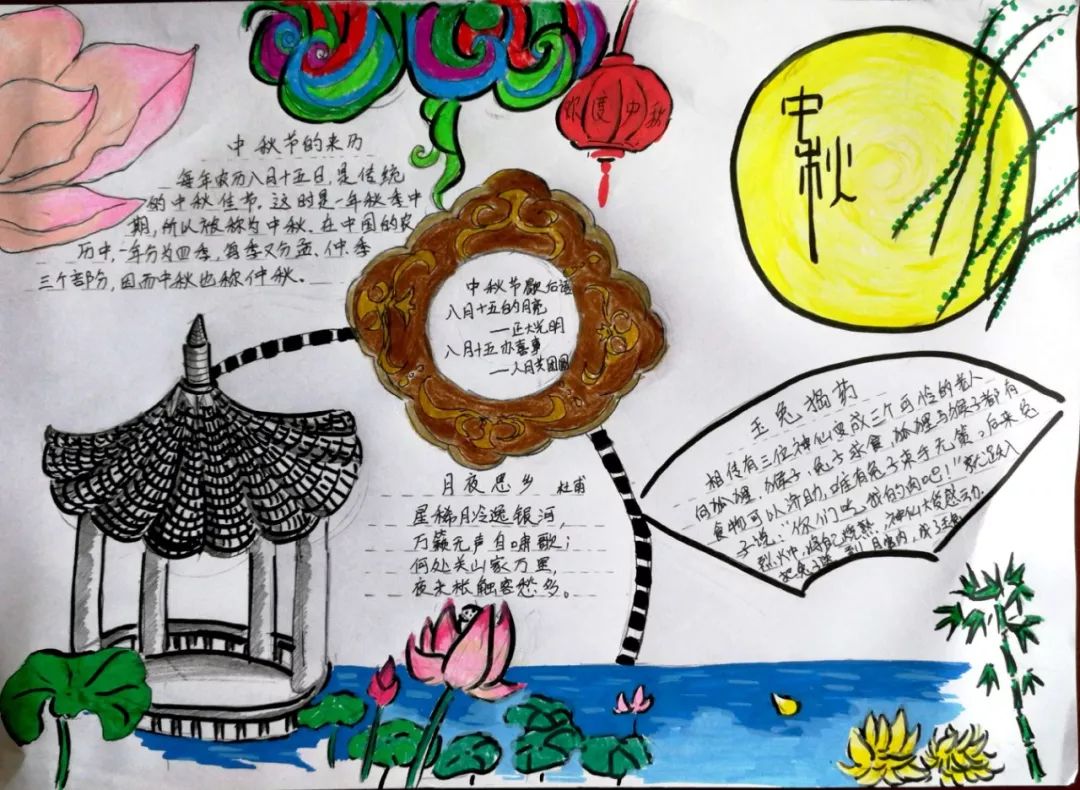 欢度中秋
中秋
中秋节的来历
每年农历八月十五日,是传统
的中秋佳节。这时是一年秋季中
期,所以被称为中秋。在中国的农
历中,一年分为四季,每季又分孟、仲、季
三个部分,因而中秋也称仲秋。
中秋节歇后语
八月十五的月亮
——正大光明
八月十五办喜事
——人月共团圆
月夜思乡 杜甫
星稀月冷逸银河,
万籁无声自啸歌;
何处关山家万里,
夜来枨触客愁多。
玉兔捣药
相传有三位神仙变成三个可怜的老人
向狐狸、猴子、兔子求食,狐狸与猴子都有
食物可以济助,唯有兔子束手无策。后来兔
子说:“你们吃我的肉吧!”就跃入
烈火中,将自己烧熟,神仙大受感动,
把兔子送到月宫内,成了玉兔